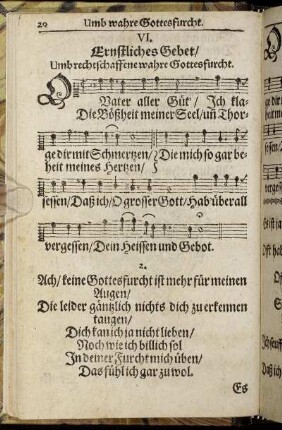 20 Umb wahre Gottesfurcht.
VI.
Ernstliches Gebet/
Umb rechtschaffene wahre Gottesfurcht.
O Vater aller Güt/ Ich kla-
Die Bößheit meiner Seel/ uñ Thor-
ge dir mit Schmertzen/ Die mich so gar be-
heit meines Hertzen/
sessen/ Daß ich/ O grosser Gott/ Hab überall
vergessen/ Dein Heissen und Gebot.
2.
Ach/ keine Gottesfurcht ist mehr für meinen
Augen/
Die leider gäntzlich nichts dich zu erkennen
taugen/
Dich kan ich ja nicht lieben/
Noch wie ich billich sol
In deiner Furcht mich üben/
Das fühl ich gar zu wol.
Es